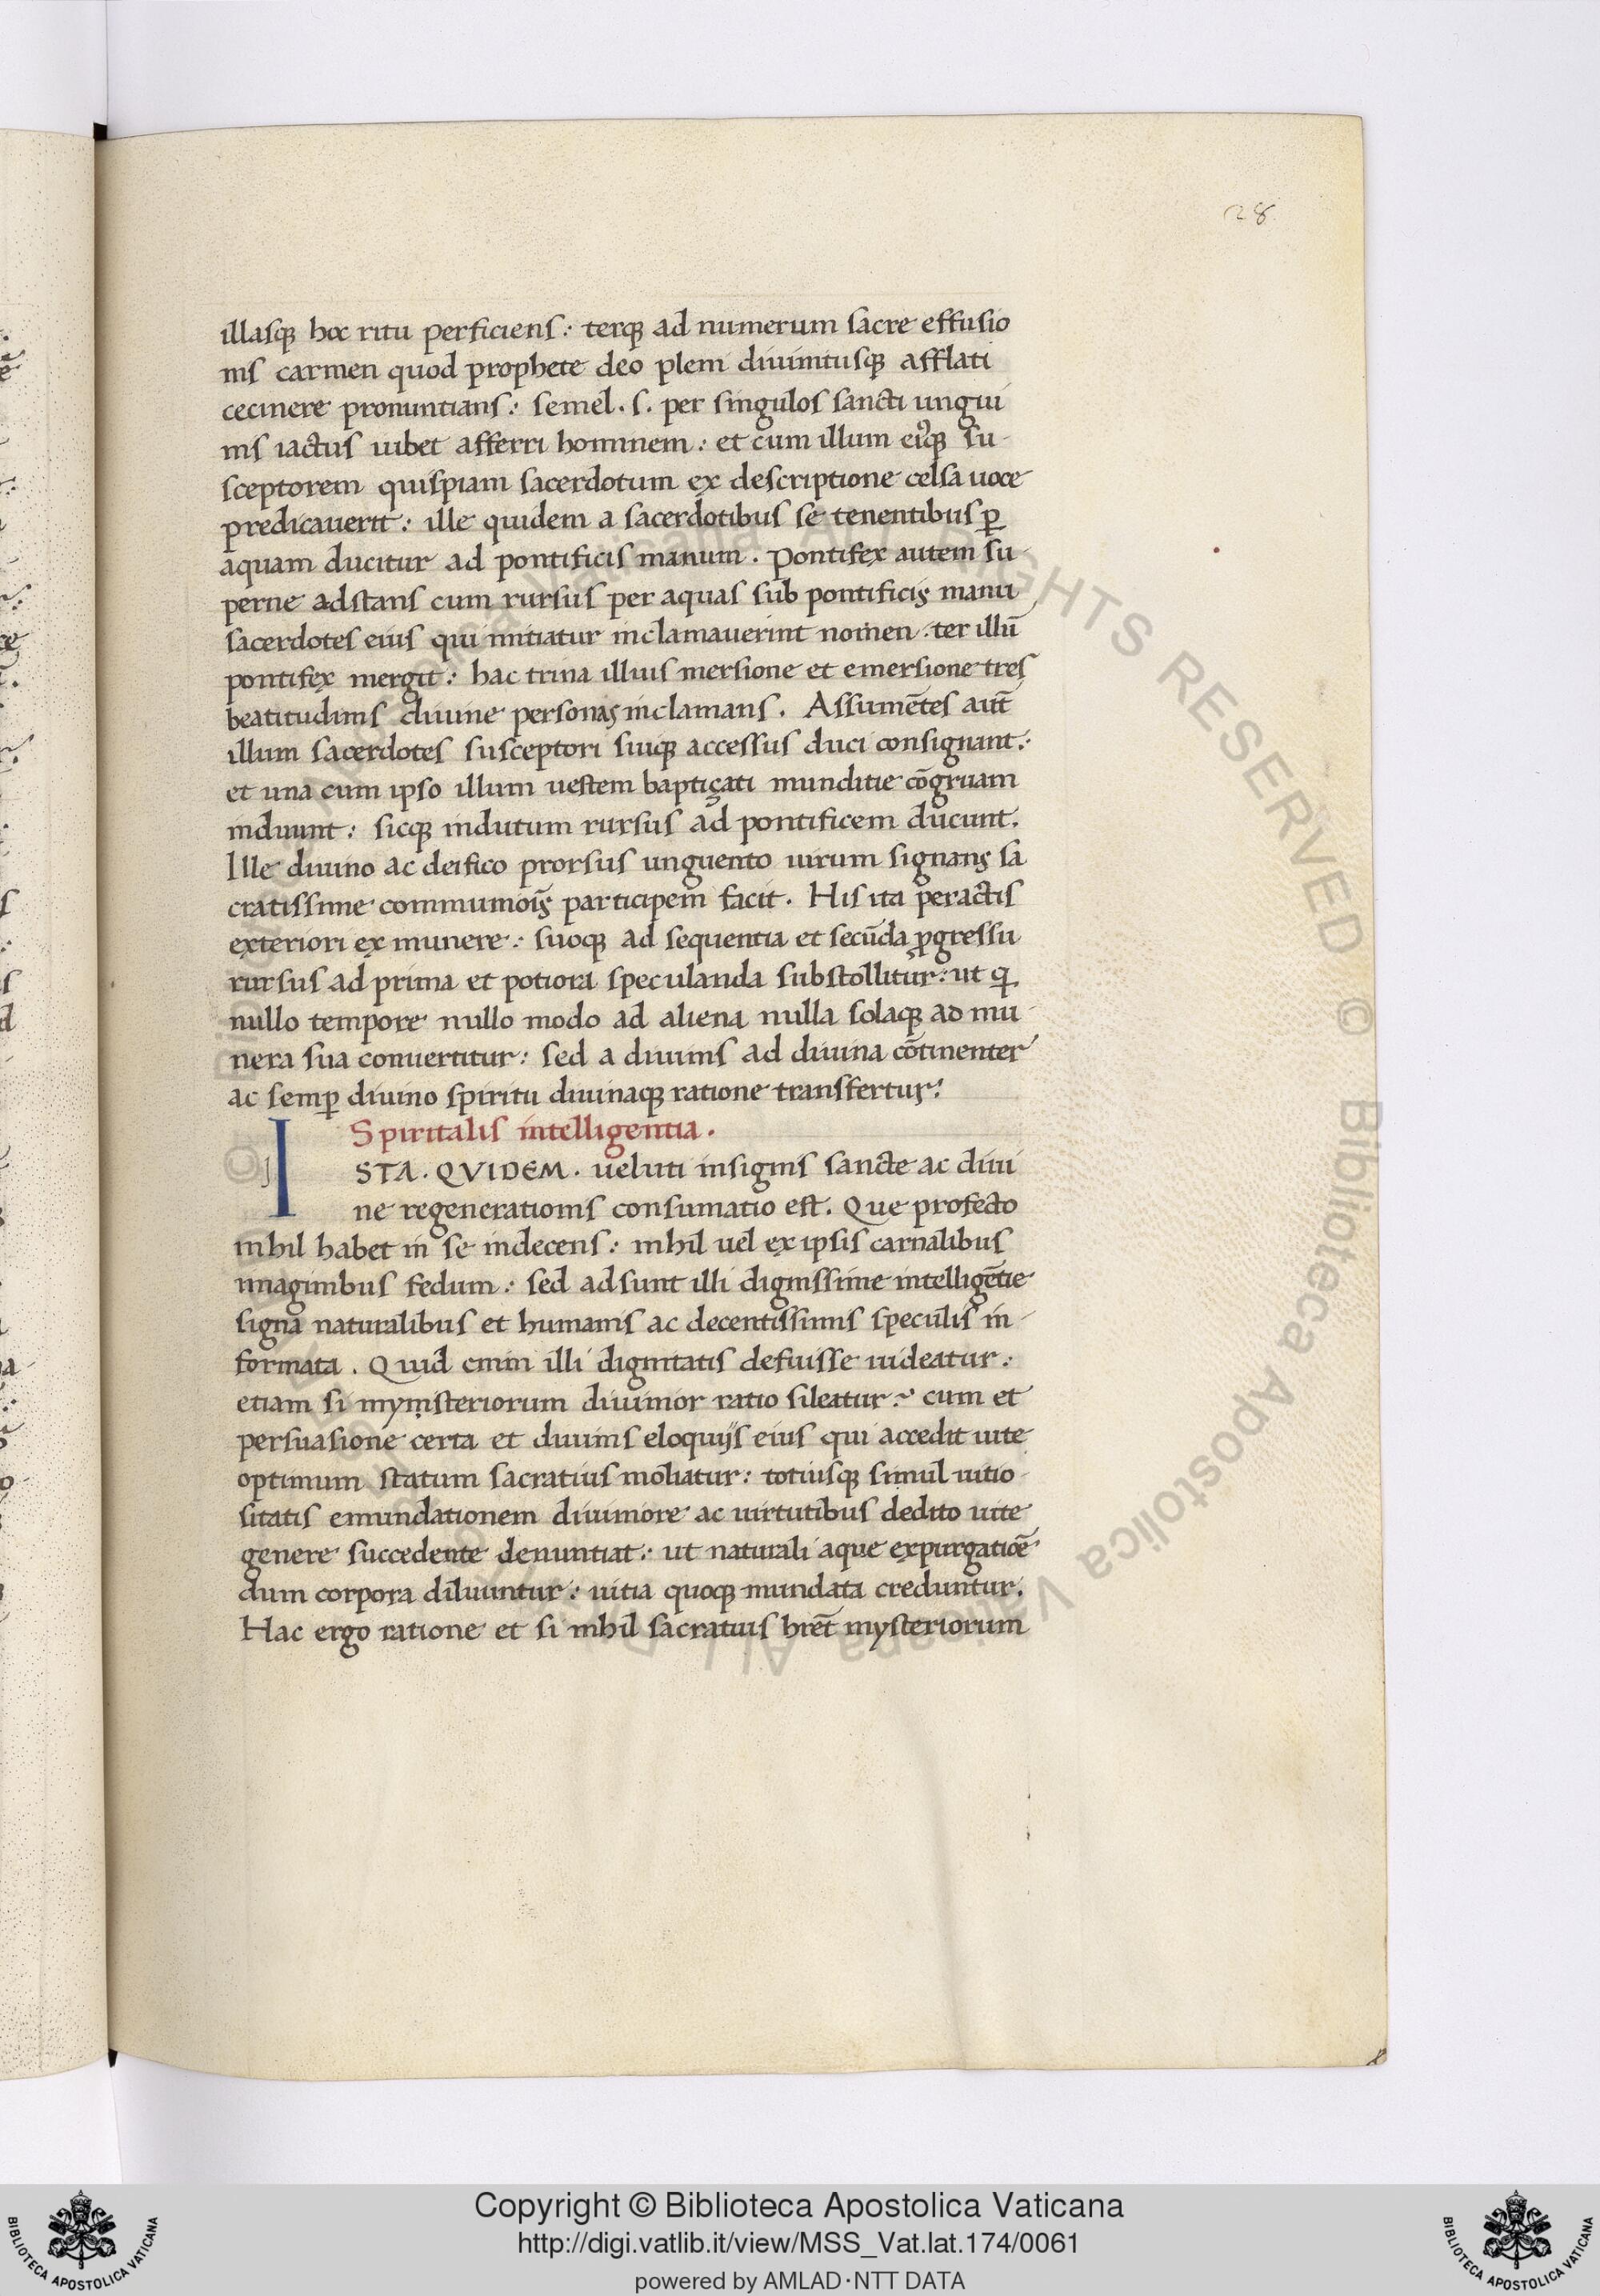 28
illasqȝ hoc ritu perficiens: terqȝ ad numerum sacre effusio
nis carmen quod prophete deo pleni diuinitusqȝ afflati
cecinere pronuntians: semel . s . per singulos sancti ungui
nis iactus iubet afferri hominem: et cum illum eiꝰqȝ su-
sceptorem quispiam sacerdotum ex descriptione celsa uoce
predicauerit: ille quidem a sacerdotibus se tenentibus ꝑ
aquam ducitur ad pontificis manum. Pontifex autem su-
perne adstans cum rursus per aquas sub pontificis manu
sacerdotes eius qui initiatur inclamauerint nomen. ter illū
pontifex mergit: hac trina illius mersione et emersione tres
beatitudinis diuine personas inclamans. Assumētes aūt
illum sacerdotes susceptori suiqȝ accessus duci consignant:
et una cum ipso illum uestem baptiçati munditie cōgruam
induunt: sicqȝ indutum rursus ad pontificem ducunt.
Ille diuino ac deifico prorsus unguento uirum signans sa
cratissime communiōis participem facit. His ita peractis
exteriori ex munere: suoqȝ ad sequentia et secūda ꝓgressu
rursus ad prima et potiora speculanda substollitur: ut qi
nullo tempore nullo modo ad aliena nulla solaqȝ ad mu
nera sua conuertitur: sed a diuinis ad diuina cōtinenter
ac semꝑ diuino spiritu diuinaqȝ ratione transfertur:
Spiritalis intelligentia.
I STA. QVIDEM. ueluti insignis sancte ac diui
ne regenerationis consumatio est. Que profecto
nihil habet in se indecens: nihil uel ex ipsis carnalibus
imaginibus fedum: sed adsunt illi dignissime intelligētie
signa naturalibus et humanis ac decentissimis speculis in-
formata. Quid enim illi dignitatis defuisse uideatur:
etiam si mymsteriorum diuinior ratio sileatur? cum et
persuasione certa et diuinis eloquijs eius qui accedit uite
optimum statum sacratius moliatur: totiusqȝ simul uitio-
sitatis emundationem diuiniore ac uirtutibus dedito uite
genere succedente denuntiat: ut naturali aque expurgatiōe
dum corpora diluuntur: uitia quoqȝ mundata creduntur.
Hac ergo ratione et si nihil sacratius hrēt mysteriorum
Copyright © Biblioteca Apostolica Vaticana
http://digi.vatlib.it/view/MSS_Vat.lat.174/0061
powered by AMLAD·NTT DATA
BIBLIOTECA APOSTOLICA VATICANA
BIBLIOTECA APOSTOLICA VATICANA
© Biblioteca Apostolica Vaticana ALL RIGHTS RESERVED